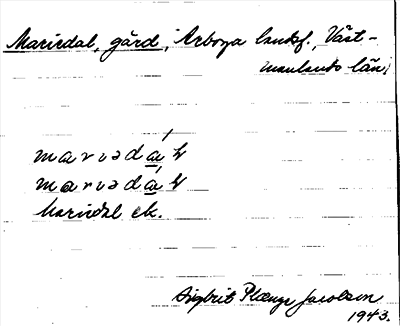 Mariedal, gård, Arboga landsf., Väst-
manlands län,
marɩədɑ́ɫ
marɩədɑ́ɫ
Mariedal ek.
Sigbrit Plænge Jacobson
1943.